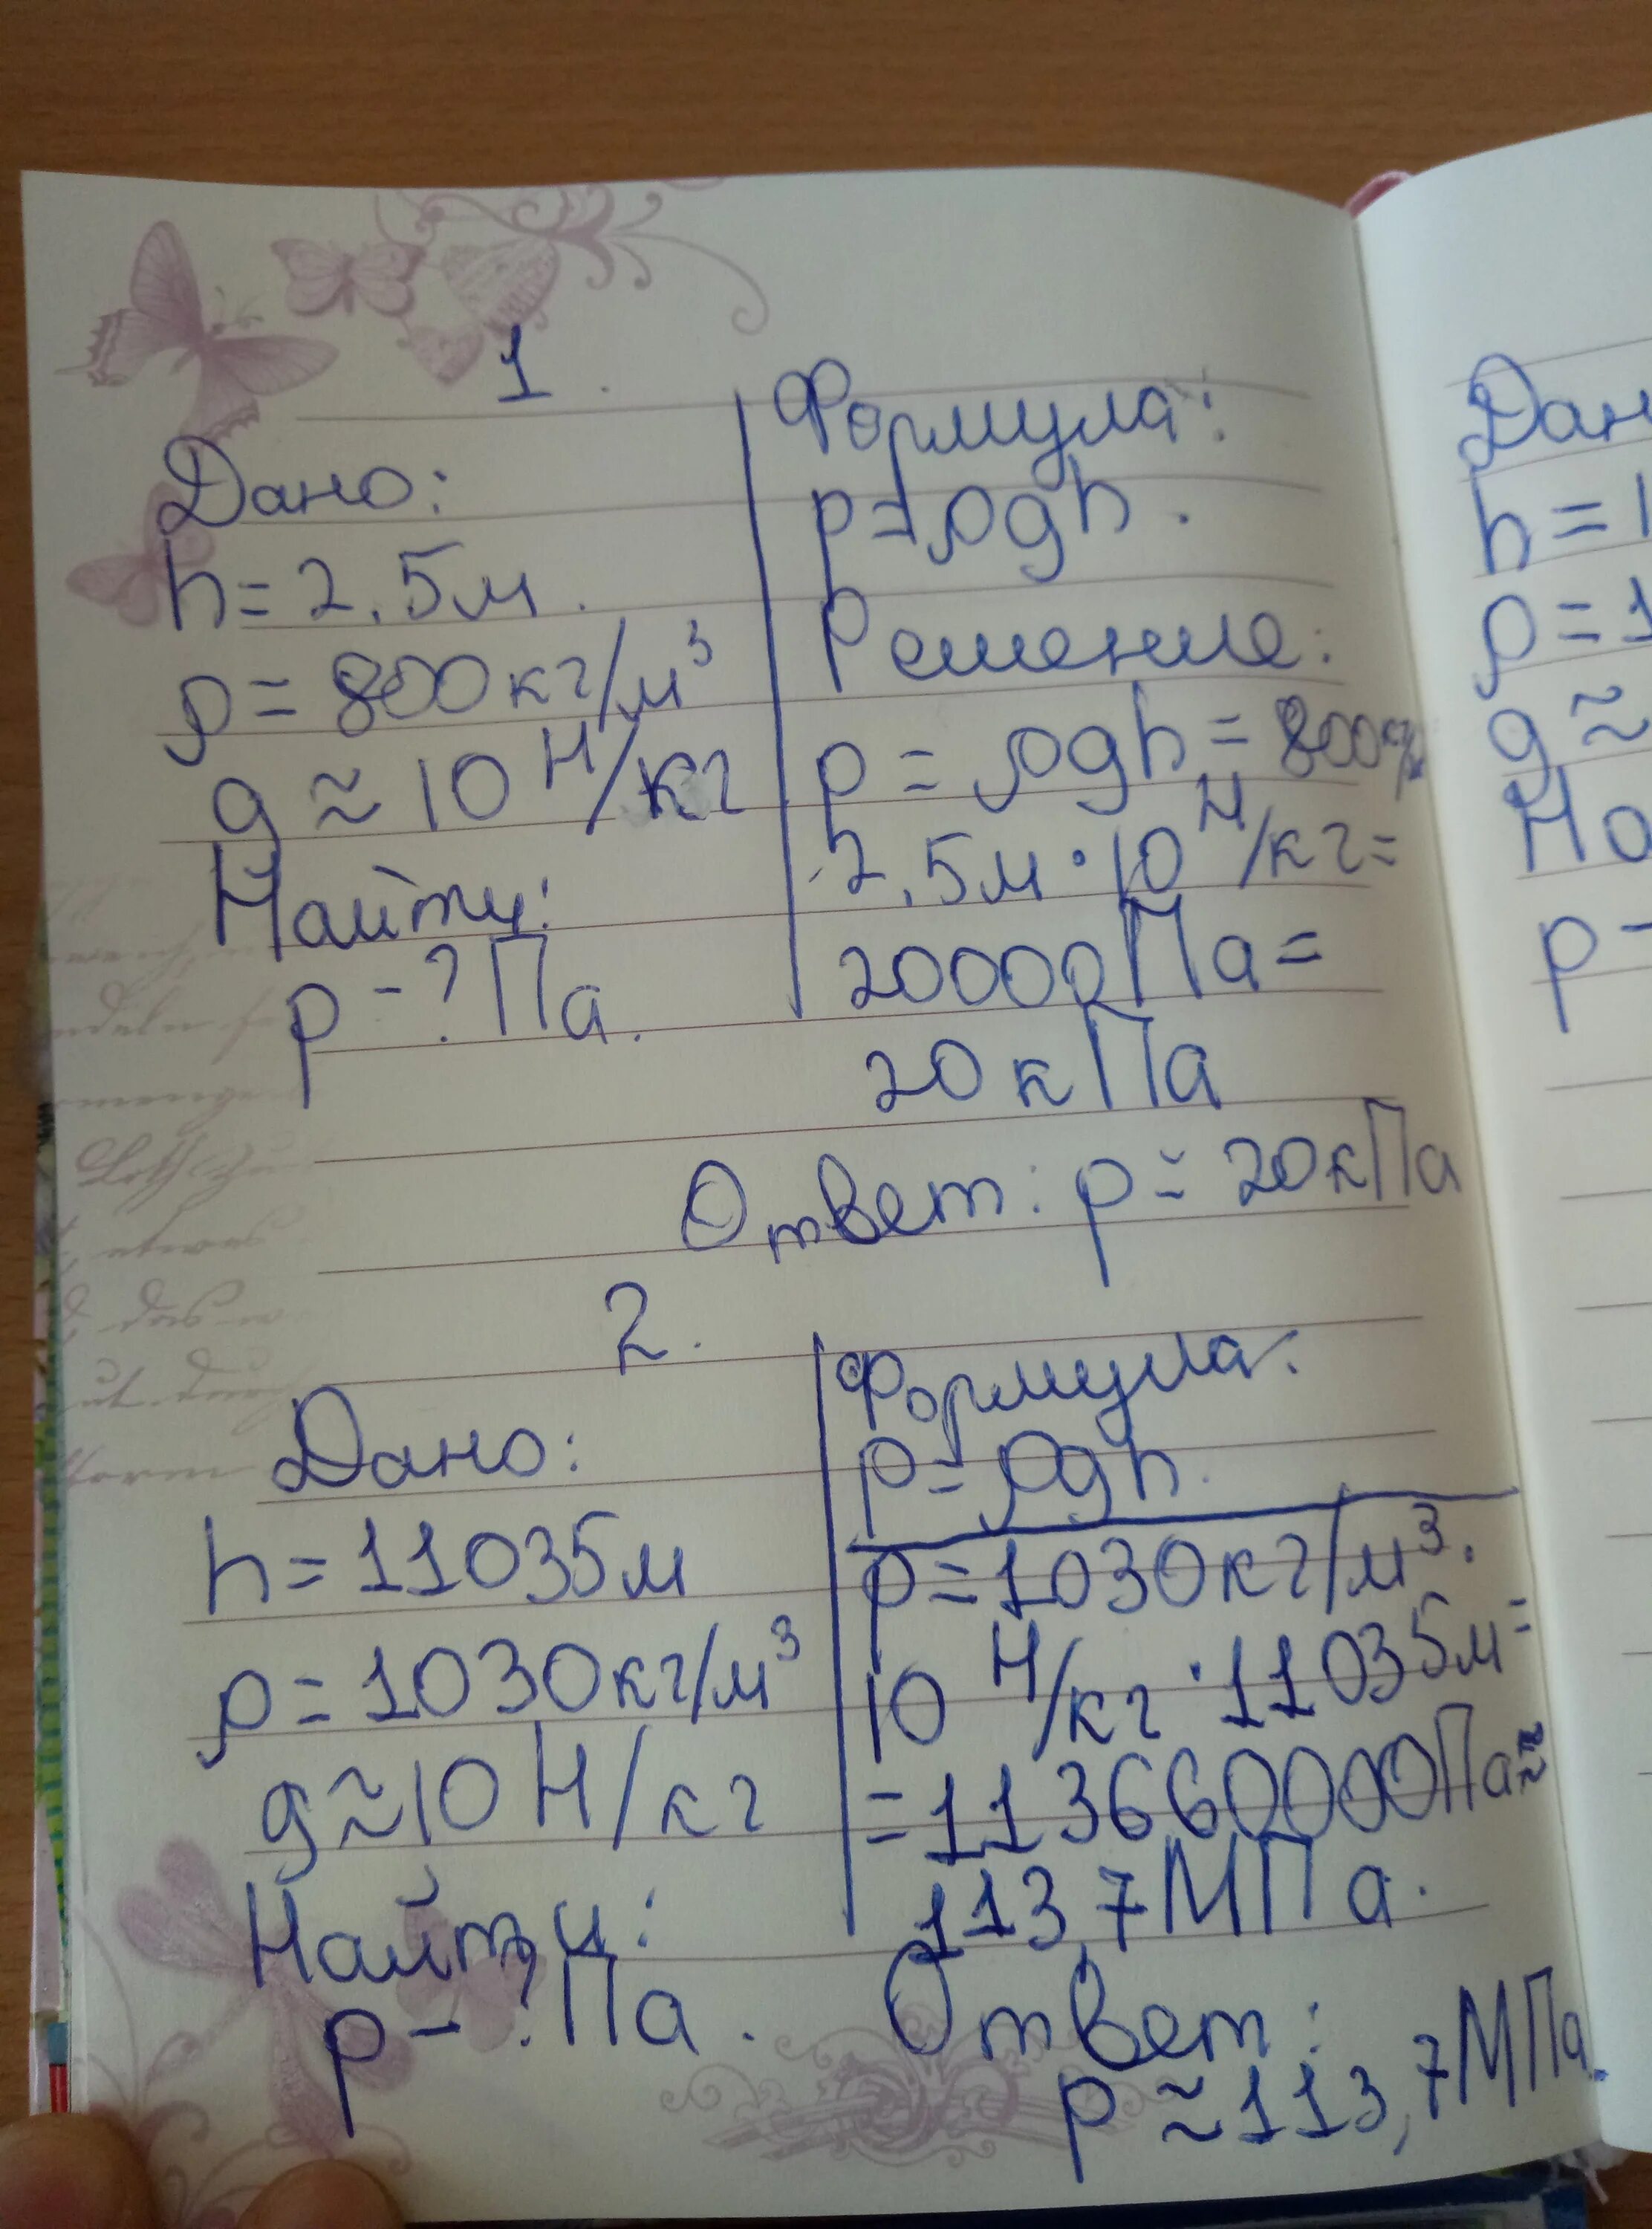 1.
Дано:
h = 2,5м.
ρ = 800кг/м³
g ≈ 10 Н/кг
Найти:
p - ? Па.
Формула:
p = ρgh.
Решение:
p = ρgh = 800
2,5м · 10 Н/кг =
20000Па =
20кПа
Ответ: p = 20кПа
2.
Дано:
h = 11035м
ρ = 1030кг/м³
g ≈ 10 Н/кг
Найти:
p - ? Па.
Формула:
p = ρgh.
p = 1030кг/м³ ·
10 Н/кг · 11035м =
= 113660000Па ≈
113,7МПа.
Ответ:
p ≈ 113,7МПа.
Дан
h = 1
ρ = 1
g ≈
На
p -